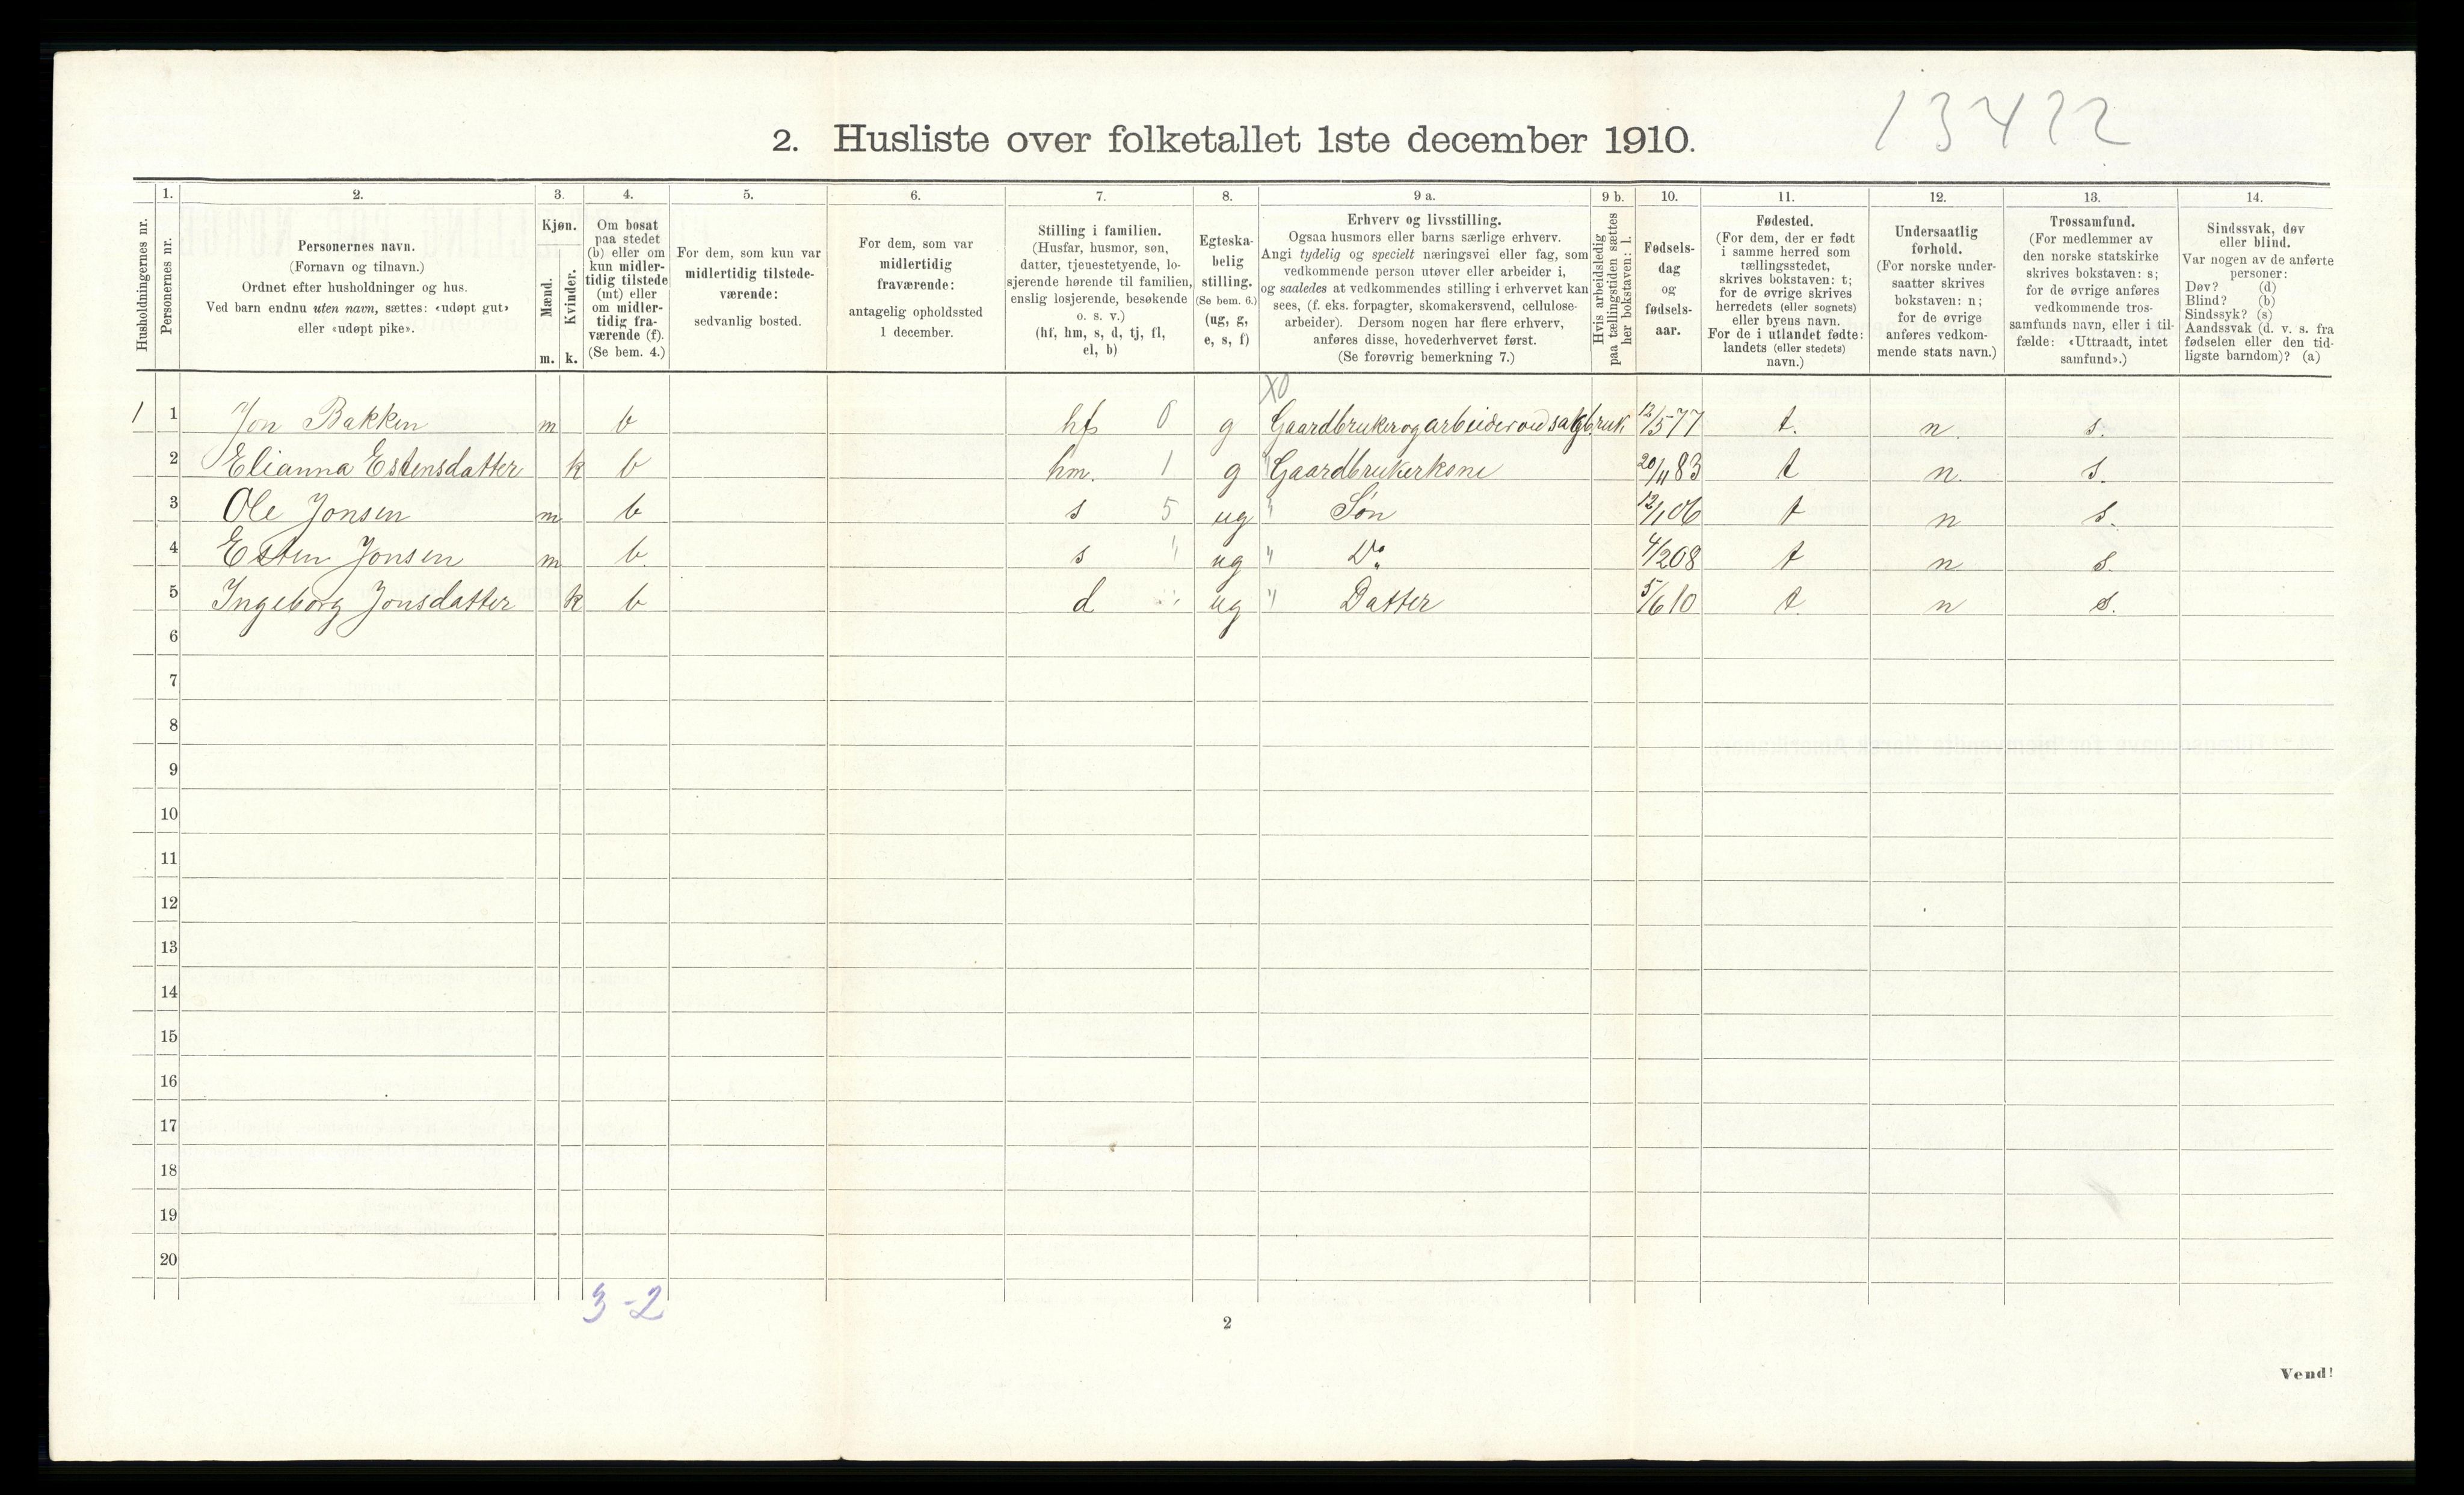 13422
2. Husliste over folketallet 1ste december 1910.
Husholdningernes nr.
1.
Personernes nr.
2.
Personernes navn.
(Fornavn og tilnavn.)
Ordnet efter husholdninger og hus.
Ved barn endnu uten navn, sættes: «udøpt gut»
eller «udøpt pike».
3.
Kjøn.
Mænd.
Kvinder.
m. k.
4.
Om bosat
paa stedet
(b) eller om
kun midler-
tidig tilstede
(mt) eller
om midler-
tidig fra-
værende (f).
(Se bem. 4.)
5.
For dem, som kun var
midlertidig tilstede-
værende:
sedvanlig bosted.
6.
For dem, som var
midlertidig
fraværende:
antagelig opholdssted
1 december.
7.
Stilling i familien.
(Husfar, husmor, søn,
datter, tjenestetyende, lo-
sjerende hørende til familien,
enslig losjerende, besøkende
o. s. v.)
(hf, hm, s, d, tj, fl,
el, b)
8.
Egteska-
belig
stilling.
(Se bem. 6.)
(ug, g,
e, s, f)
9 a.
Erhverv og livsstilling.
Ogsaa husmors eller barns særlige erhverv.
Angi tydelig og specielt næringsvei eller fag, som
vedkommende person utøver eller arbeider i,
og saaledes at vedkommendes stilling i erhvervet kan
sees, (f. eks. forpagter, skomakersvend, cellulose-
arbeider). Dersom nogen har flere erhverv,
anføres disse, hovederhvervet først.
(Se forøvrig bemerkning 7.)
9 b.
Hvis arbeidsledig
paa tællingstiden sættes
her bokstaven: l.
10.
Fødsels-
dag
og
fødsels-
aar.
11.
Fødested.
(For dem, der er født
i samme herred som
tællingsstedet,
skrives bokstaven: t;
for de øvrige skrives
herredets (eller sognets)
eller byens navn.
For de i utlandet fødte:
landets (eller stedets)
navn.)
12.
Undersaatlig
forhold.
(For norske under-
saatter skrives
bokstaven: n;
for de øvrige
anføres vedkom-
mende stats navn.)
13.
Trossamfund.
(For medlemmer av
den norske statskirke
skrives bokstaven: s;
for de øvrige anføres
vedkommende tros-
samfunds navn, eller i til-
fælde: «Uttraadt, intet
samfund».)
14.
Sindssvak, døv
eller blind.
Var nogen av de anførte
personer:
Døv? (d)
Blind? (b)
Sindssyk? (s)
Aandssvak (d. v. s. fra
fødselen eller den tid-
ligste barndom)? (a)
X0
1 1 Jon Bakken m b hf 0 g Gaardbruker og arbeider ved sagbruk 12/5 77 t. n. s.
2 Elianna Estensdatter k b hm. 1 g " Gaardbrukerkone 20/11 83 t n. s.
3 Ole Jonsen m b s 5 ug " Søn 12/1 06 t n s.
4 Esten Jonsen m b. s " ug " Do 4/2 08 t n s.
5 Ingeborg Jonsdatter k b d " ug " Datter 5/6 10 t. n s.
6
7
8
9
10
11
12
13
14
15
16
17
18
19
20
3-2
2
Vend!